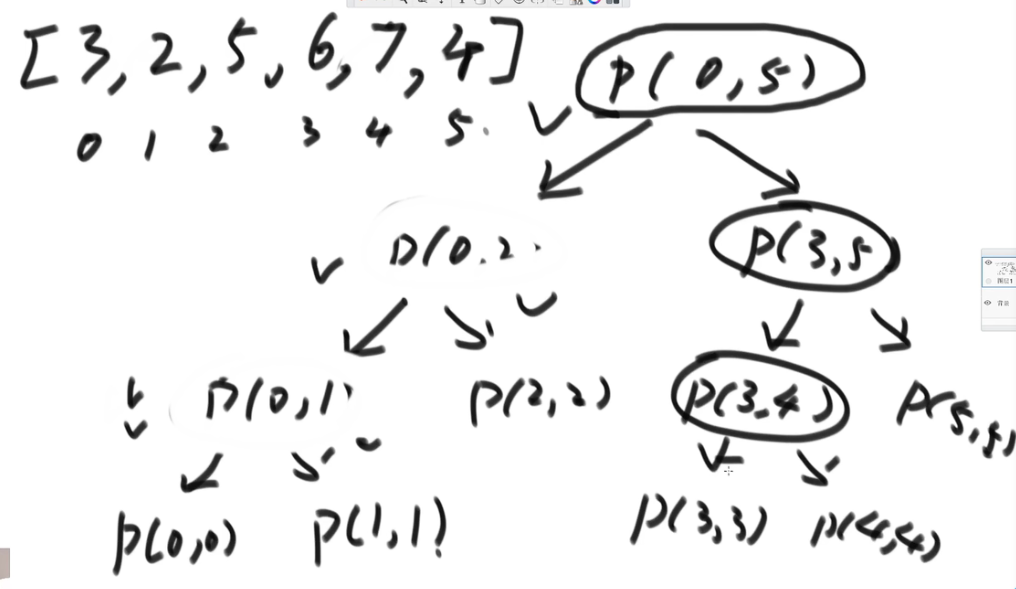 [3,2,5,6,7,4]
p(0,5)
0 1 2 3 4 5.
p(0.2
p(3,5)
p(0,1)
p(2,2)
p(3.4)
p(5,5)
p(0,0)
p(1,1)
p(3,3)
p(4,4)
图层1